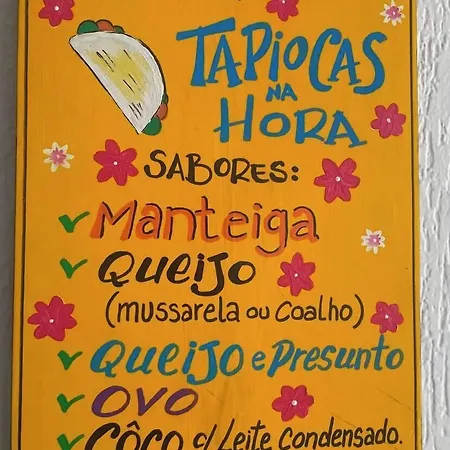 TAPIOCAS
NA
HORA
SABORES:
Manteiga
QUEIJO
(MUSSARELA OU COALHO)
QUEIJO e Presunto
OVO
CÔCO c/ Leite Condensado.